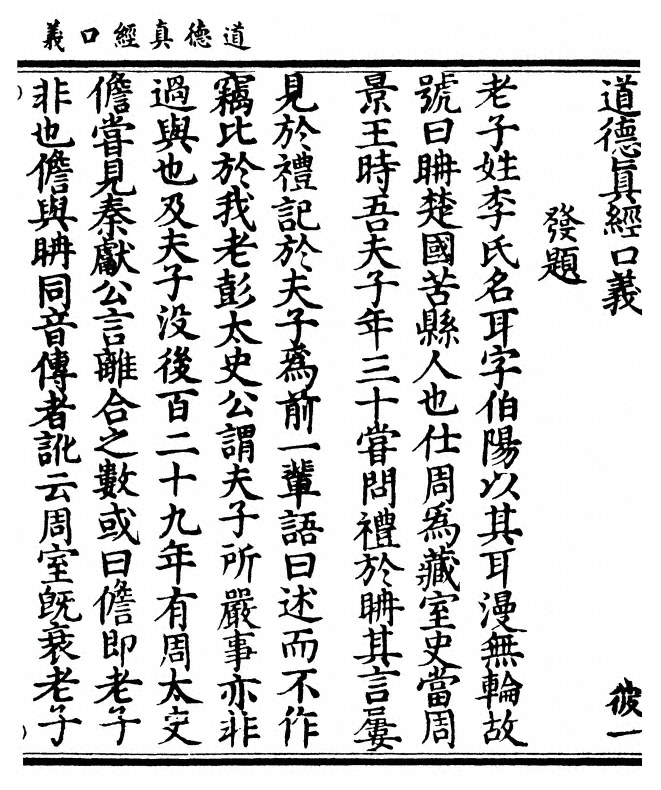 道德真經口義
道德眞經口義　彼一
發題
老子姓李氏名耳字伯陽以其耳漫無輪故
號曰聃楚國苦縣人也仕周爲藏室史當周
景王時吾夫子年三十嘗問禮於聃其言屢
見於禮記於夫子爲前一輩語曰述而不作
竊比於我老彭太史公謂夫子所嚴事亦非
過與也及夫子没後百二十九年有周太史
儋嘗見秦獻公言離合之數或曰儋即老子
非也儋與聃同音傳者訛云周室旣衰老子